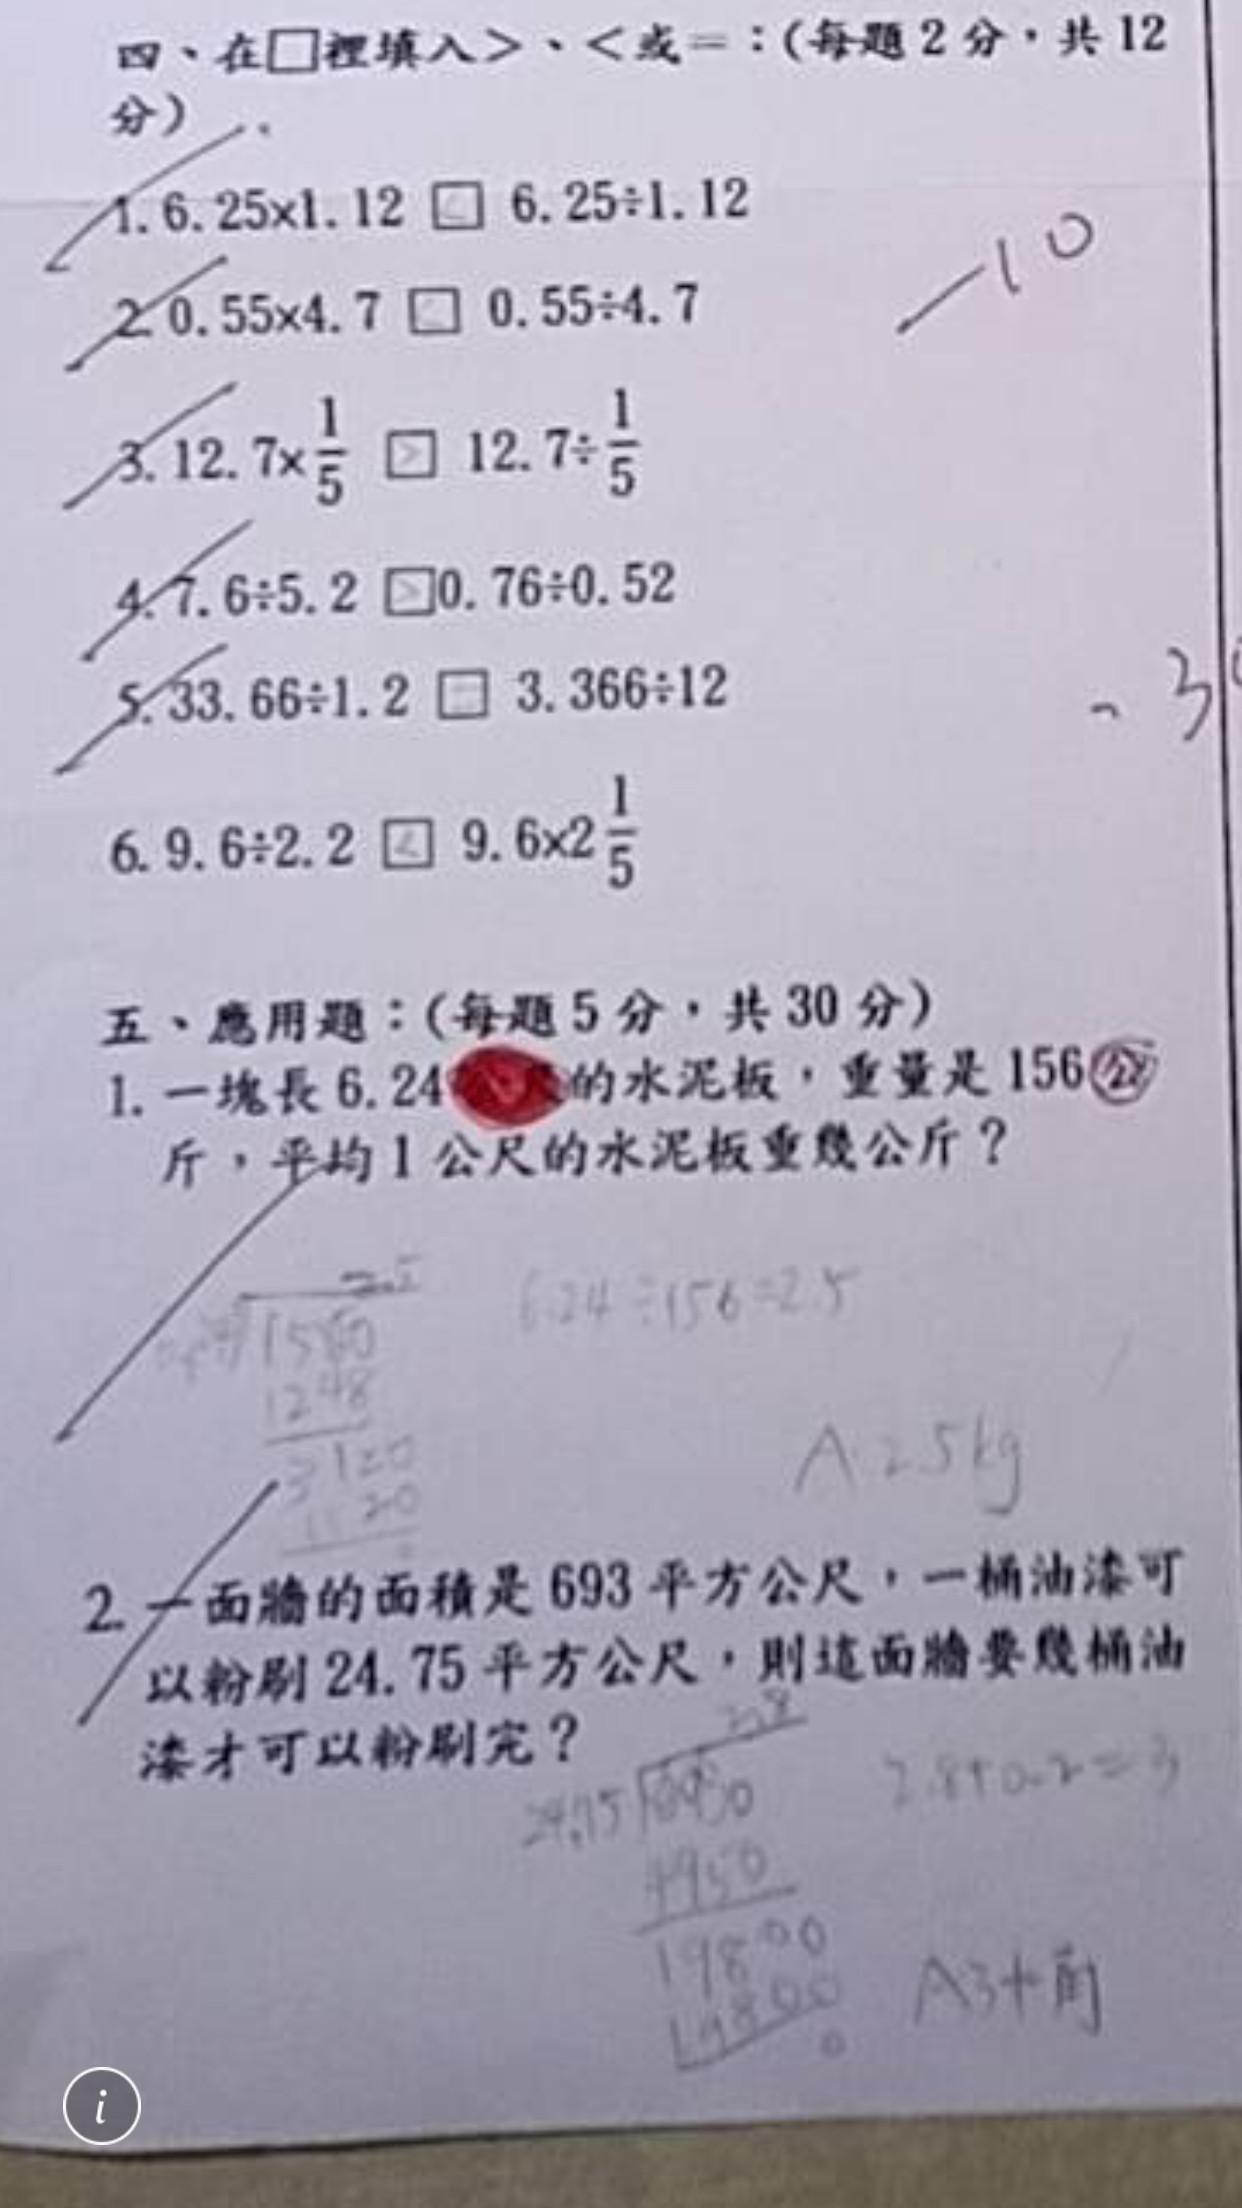 四、在□裡填入＞、＜或＝：(每題2分，共12
分)
-10
1. 6.25×1.12 □ 6.25÷1.12
2. 0.55×4.7 □ 0.55÷4.7
3. 12.7×1/5 [>] 12.7÷1/5
4. 7.6÷5.2 [>] 0.76÷0.52
5. 33.66÷1.2 □ 3.366÷12
6. 9.6÷2.2 [<] 9.6×2 1/5
五、應用題：(每題5分，共30分)
1. 一塊長6.24的水泥板，重量是156公
斤，平均1公尺的水泥板重幾公斤？
2.5
6.24÷156=2.5
1560
1248
3120
A:25kg
2. 一面牆的面積是693平方公尺，一桶油漆可
以粉刷24.75平方公尺，則這面牆要幾桶油
漆才可以粉刷完？
2.8
24.75
2.8+0.2=3
4950
19800
19800
0
A3